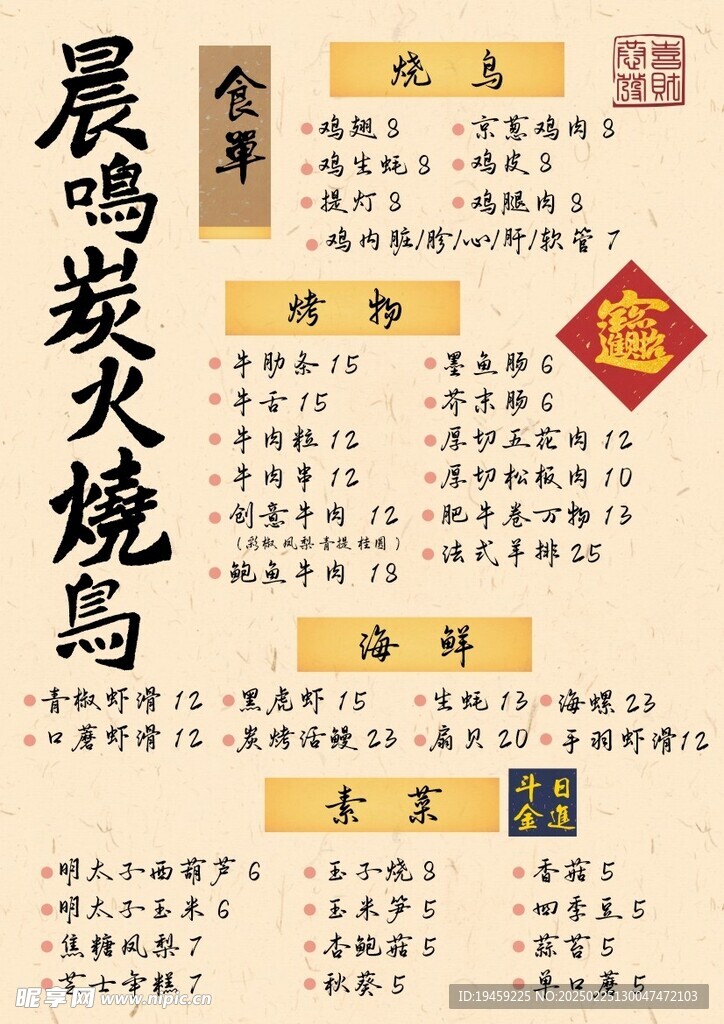 晨鳴炭火燒鳥
食單
喜財
發
烧鸟
鸡翅 8
京葱鸡肉 8
鸡生蚝 8
鸡皮 8
提灯 8
鸡腿肉 8
鸡内脏/胗/心/肝/软管 7
烤物
牛肋条 15
墨鱼肠 6
牛舌 15
芥末肠 6
牛肉粒 12
厚切五花肉 12
牛肉串 12
厚切松板肉 10
创意牛肉 12
肥牛卷万物 13
(彩椒凤梨青提桂圆)
法式羊排 25
鲍鱼牛肉 18
海鲜
青椒虾滑 12
黑虎虾 15
生蚝 13
海螺 23
口蘑虾滑 12
炭烤活鳗 23
扇贝 20
手羽虾滑 12
素菜
日進
斗金
明太子西葫芦 6
玉子烧 8
香菇 5
明太子玉米 6
玉米笋 5
四季豆 5
焦糖凤梨 7
杏鲍菇 5
蒜苔 5
芝士年糕 7
秋葵 5
单口蘑 5
昵享网 www.nipic.cn
ID:19459225 NO:20250225130047472103